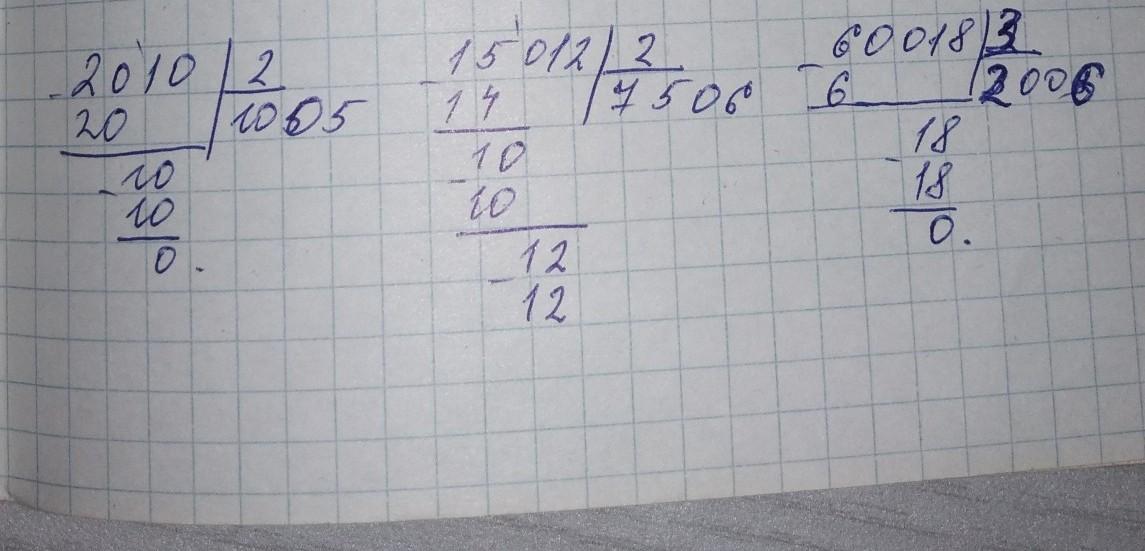 - 2010 | 2
20 | 1005
- 10
10
0.
- 15012 | 2
14 | 7506
- 10
10
- 12
12
- 60018 | 3
6 | 2006
- 18
18
0.